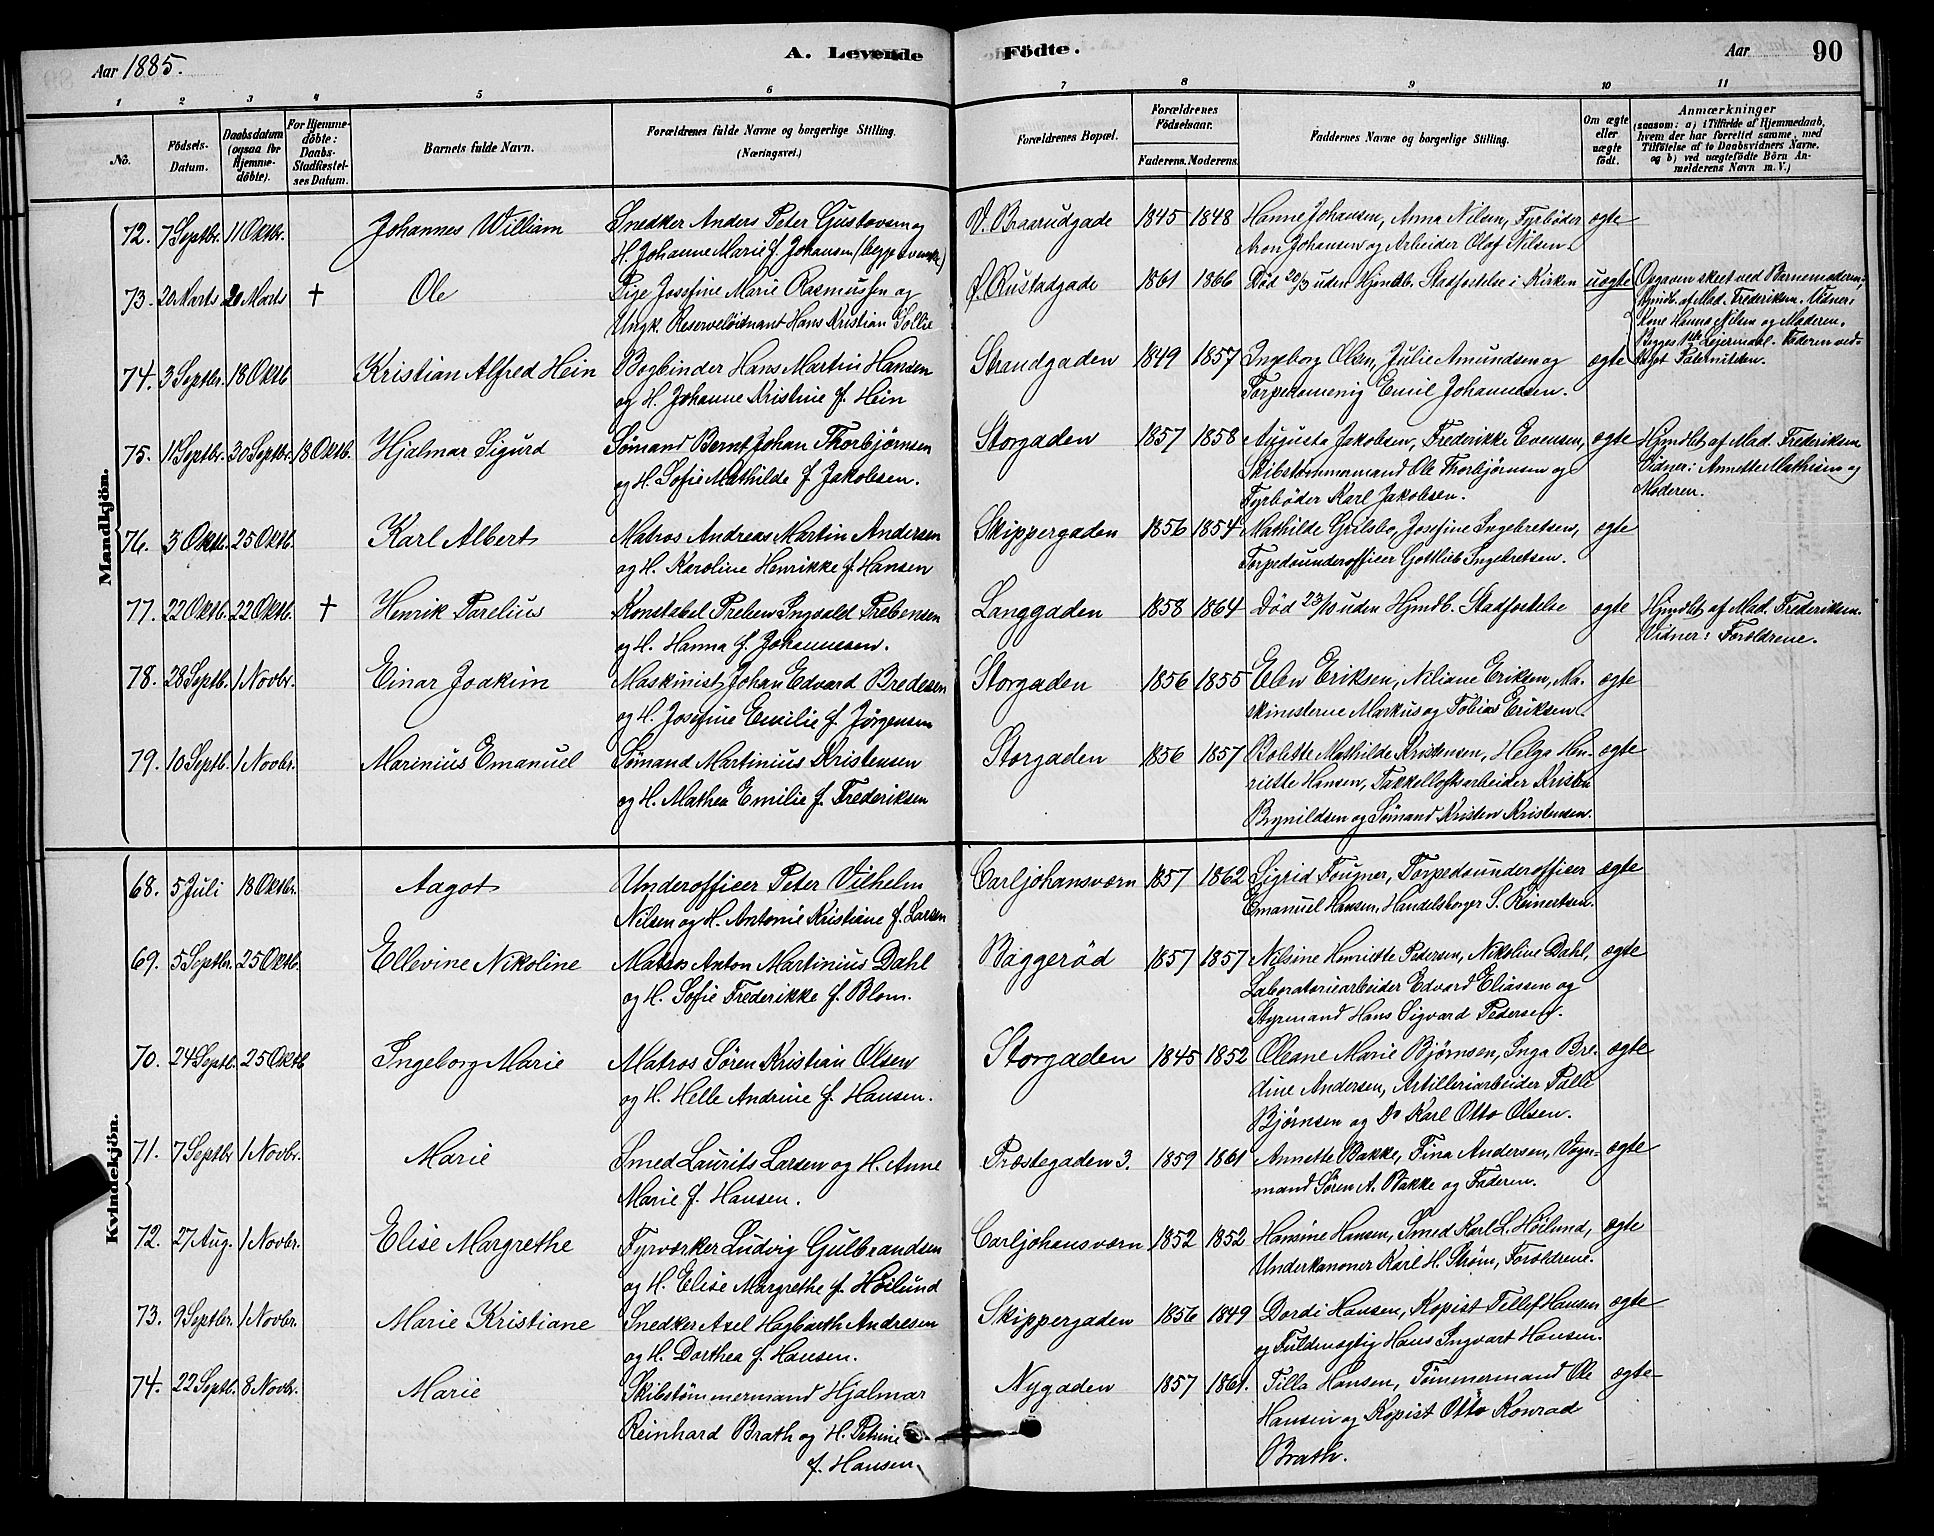 Aar 1885.
A. Levende Födte.
Aar
90
1 2 3 4 5 6 7 8 9 10 11
No.
Födsels-Datum.
Daabsdatum (ogsaa for Hjemme-döbte).
For Hjemme-döbte: Daabs-Stadfæstel-ses Datum.
Barnets fulde Navn.
Forældrenes fulde Navne og borgerlige Stilling.
(Næringsvei.)
Forældrenes Bopæl.
Forældrenes Födselsaar.
Faderens. Moderens.
Faddernes Navne og borgerlige Stilling.
Om ægte eller uægte födt.
Anmærkninger
(saasom: a) i Tilfælde af Hjemmedaab,
hvem der har forrettet samme, med
Tilföielse af to Daabsvidners Navne.
og b) ved uægtefödte Börn An-
melderens Navn m. V.)
Mandkjön.
72. 7 Septbr. 11 Oktbr. Johannes William Snedker Anders Peter Gustavsen og V. Braarudgade 1845 1848 Hanne Johansen, Anna Nilsen, Fyrbøder ægte
H. Johanne Marie f. Johansen (begge svenske) Aron Johansen og Arbeider Olaf Nilsen.
73. 20 Marts 20 Marts † Ole Pige Josefine Marie Rasmussen og Ø. Rustadgade 1861 1866 Død 20/3 uden Hjmdb. Stadfæstelse i Kirken uægte Opgaven skeet ved Barnemoderen,
Ungk. Reserveløidnant Hans Kristian Sollie Hjmdb. af Mad. Frederiksen. Vidner:
Kone Hanna Nilsen og Moderen.
Begges 1ste Leiermaal. Faderen ved-
taget Paterniteten.
74. 3 Septbr. 18 Oktb Kristian Alfred Hein Bogbinder Hans Martin Hansen Strandgaden 1849 1857 Ingeborg Olsen, Julie Amundsen og ægte
og H. Johanne Kristine f. Hein Torpedomenig Emil Johannesen.
75. 11 Septbr. 30 Septbr. 18 Oktb. Hjalmar Sigurd Sømand Bernt Johan Thorbjørnsen Storgaden 1857 1858 Augusta Jakobsen, Frederikke Evensen, ægte Hjmdbt af Mad. Frederiksen
og H. Sofie Mathilde f. Jakobsen. Skibstømmermand Ole Thorbjørnsen og Vidner: Annette Mathisen og
Fyrbøder Karl Jakobsen. Moderen.
76. 3 Oktb. 25 Oktb. Karl Albert Matros Andreas Martin Andersen Skippergaden 1856 1854 Mathilde Grilsbo, Josefine Ingebretsen, ægte
og H. Karoline Henrikke f. Hansen Torpedounderofficer Gottlieb Ingebretsen.
77. 22 Oktb. 22 Oktb. † Henrik Parelius Konstabel Preben Ingvald Prebensen Langgaden 1858 1864 Død 23/10 uden Hjmdb. Stadfæstelse ægte Hjmdbt af Mad. Frederiksen.
og H. Hanna f. Johannesen. Vidner: Forældrene.
78. 28 Septb. 1 Novbr. Einar Joakim Maskinist Johan Edvard Bredesen Storgaden 1856 1855 Elen Eriksen, Niliane Eriksen, Ma- ægte
og H. Josefine Emilie f. Jørgensen skinesterne Markus og Tobias Eriksen.
79. 10 Septb. 1 Novbr. Marinius Emanuel Sømand Martinius Kristensen Storgaden 1856 1857 Bolette Mathilde Kristensen, Helga Hen- ægte
og H. Mathea Emilie f. Frederiksen riette Hansen, Takkelloftsarbeider Kristen
Brynildsen og Sømand Kristen Kristensen.
Kvindekjön.
68. 5 Juli 18 Oktbr. Aagot Underofficer Peter Vilhelm Carljohansværn 1857 1862 Sigrid Fougner, Torpedounderofficer ægte
Nilsen og H. Antonie Kristiane f. Larsen Emanuel Hansen, Handelsborger S. Reinertsen.
69. 5 Septbr. 25 Oktb. Ellevine Nikoline Matros Anton Martinius Dahl Baggerød 1857 1857 Nilsine Henriette Pedersen, Nikoline Dahl, ægte
og H. Sofie Frederikke f. Blom. Laboratoriearbeider Edvard Eliassen og
Styrmand Hans Sigvard Pedersen.
70. 24 Septb. 25 Oktb Ingeborg Marie Matros Søren Kristian Olsen Storgaden 1845 1852 Oleane Marie Bjørnsen, Inga Bre- ægte
og H. Helle Andrine f. Hansen. dine Andersen, Artilleriarbeider Palle
Bjørnsen og Do Karl Otto Olsen.
71. 7 Septbr 1 Novbr. Marie Smed Laurits Larsen og H. Anne Præstegaden 3. 1859 1861 Annette Bakke, Fina Andersen, Vogn- ægte
Marie f. Hansen. mand Søren A. Bakke og Faderen.
72. 27 Aug. 1 Novbr. Elise Margrethe Fyrværker Ludvig Gulbrandsen Carljohansværn 1852 1852 Hansine Hansen, Smed Karl L. Høilund, ægte
og H. Elise Margrethe f. Høilund Underkanoner Karl H. Strøm, Forældrene.
73. 9 Septbr. 1 Novbr. Marie Kristiane Snedker Axel Hagbarth Andresen Skippergaden 1856 1849 Dordi Hansen, Kopist Tellef Hansen ægte
og H. Dorthea f. Hansen. og Fuldmægtig Hans Ingvart Hansen.
74. 22 Septb. 8 Novbr. Marie Skibstømmermand Hjalmar Nygaden 1857 1861. Tilla Hansen, Tømmermand Ole ægte
Reinhard Brath og H. Petrine Hansen og Kopist Otto Konrad
f. Hansen. Brath.